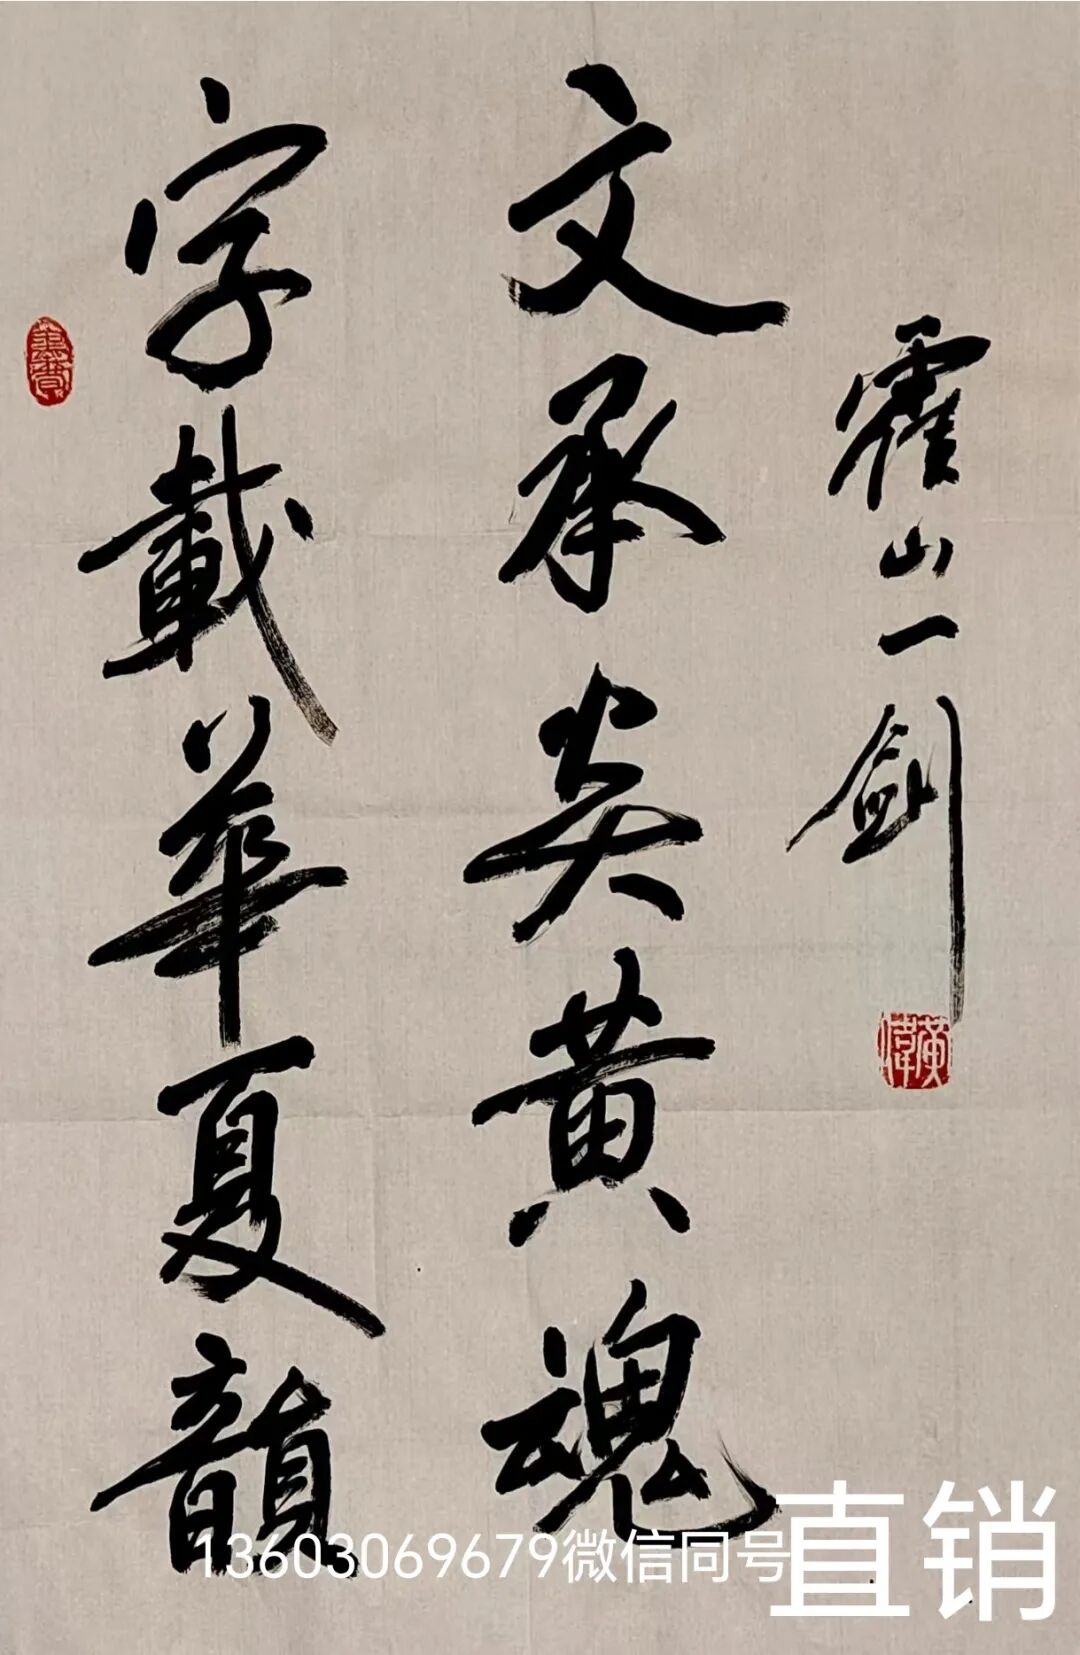 霍山一劍
文承炎黄魂
字載華夏韻
黄偉
13603069679微信同号
直销